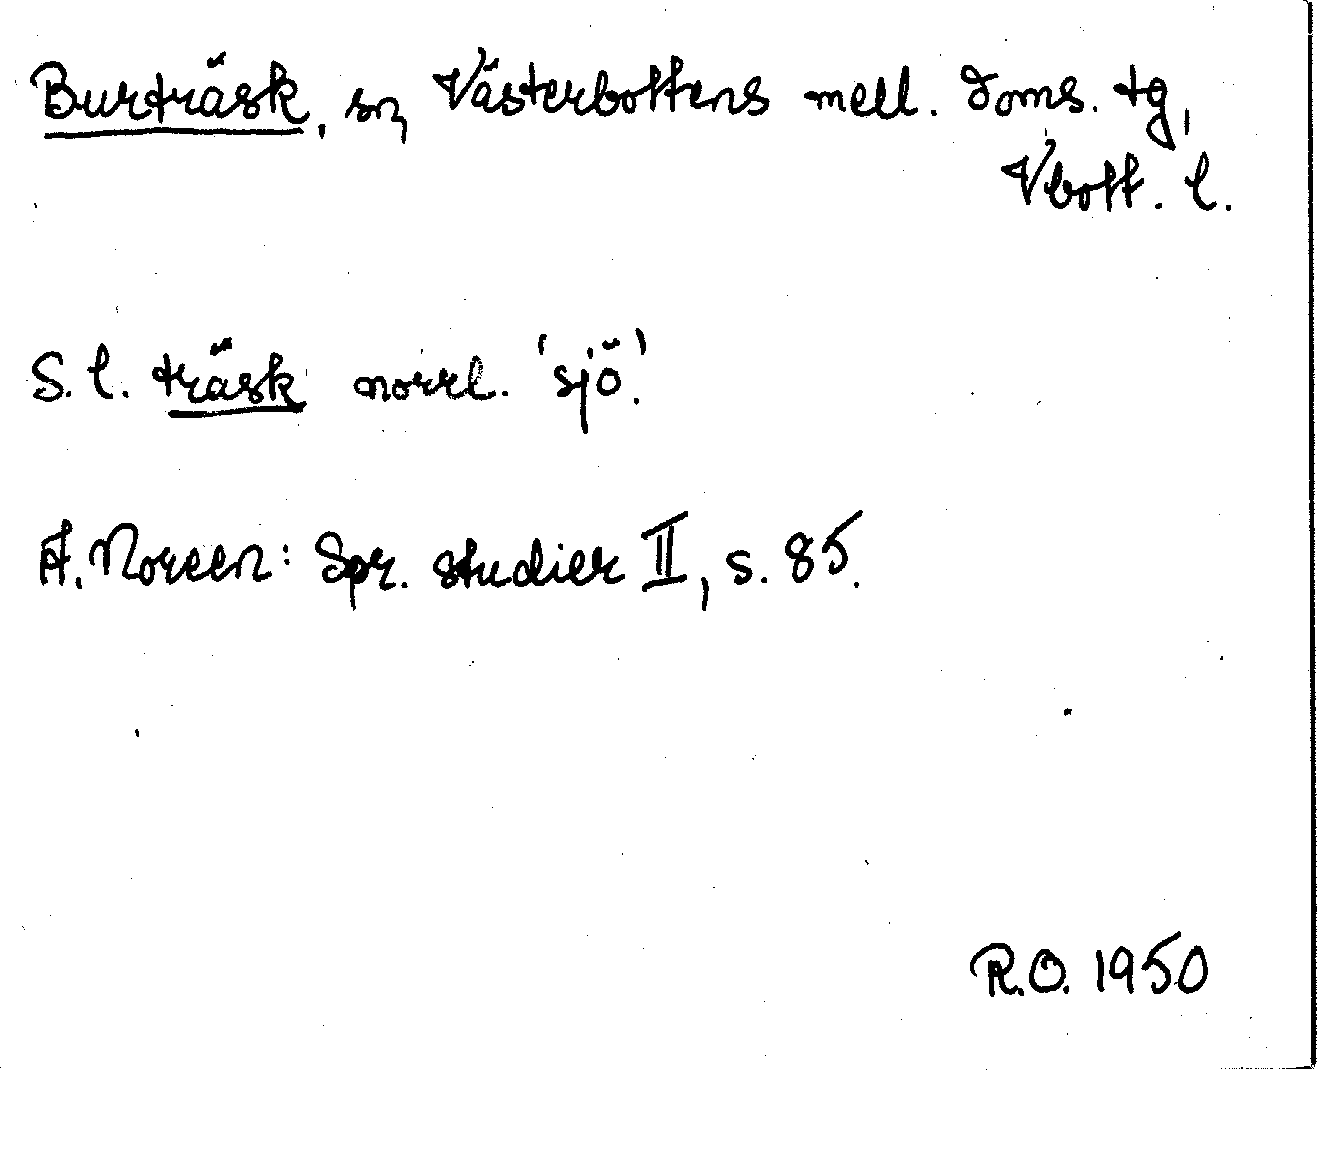 Burträsk, sn, Västerbottens mell. doms. tg,
Vbott. l.
S. l. träsk norrl. 'sjö'.
A. Noreen: Spr. studier II, s. 85.
R.O. 1950